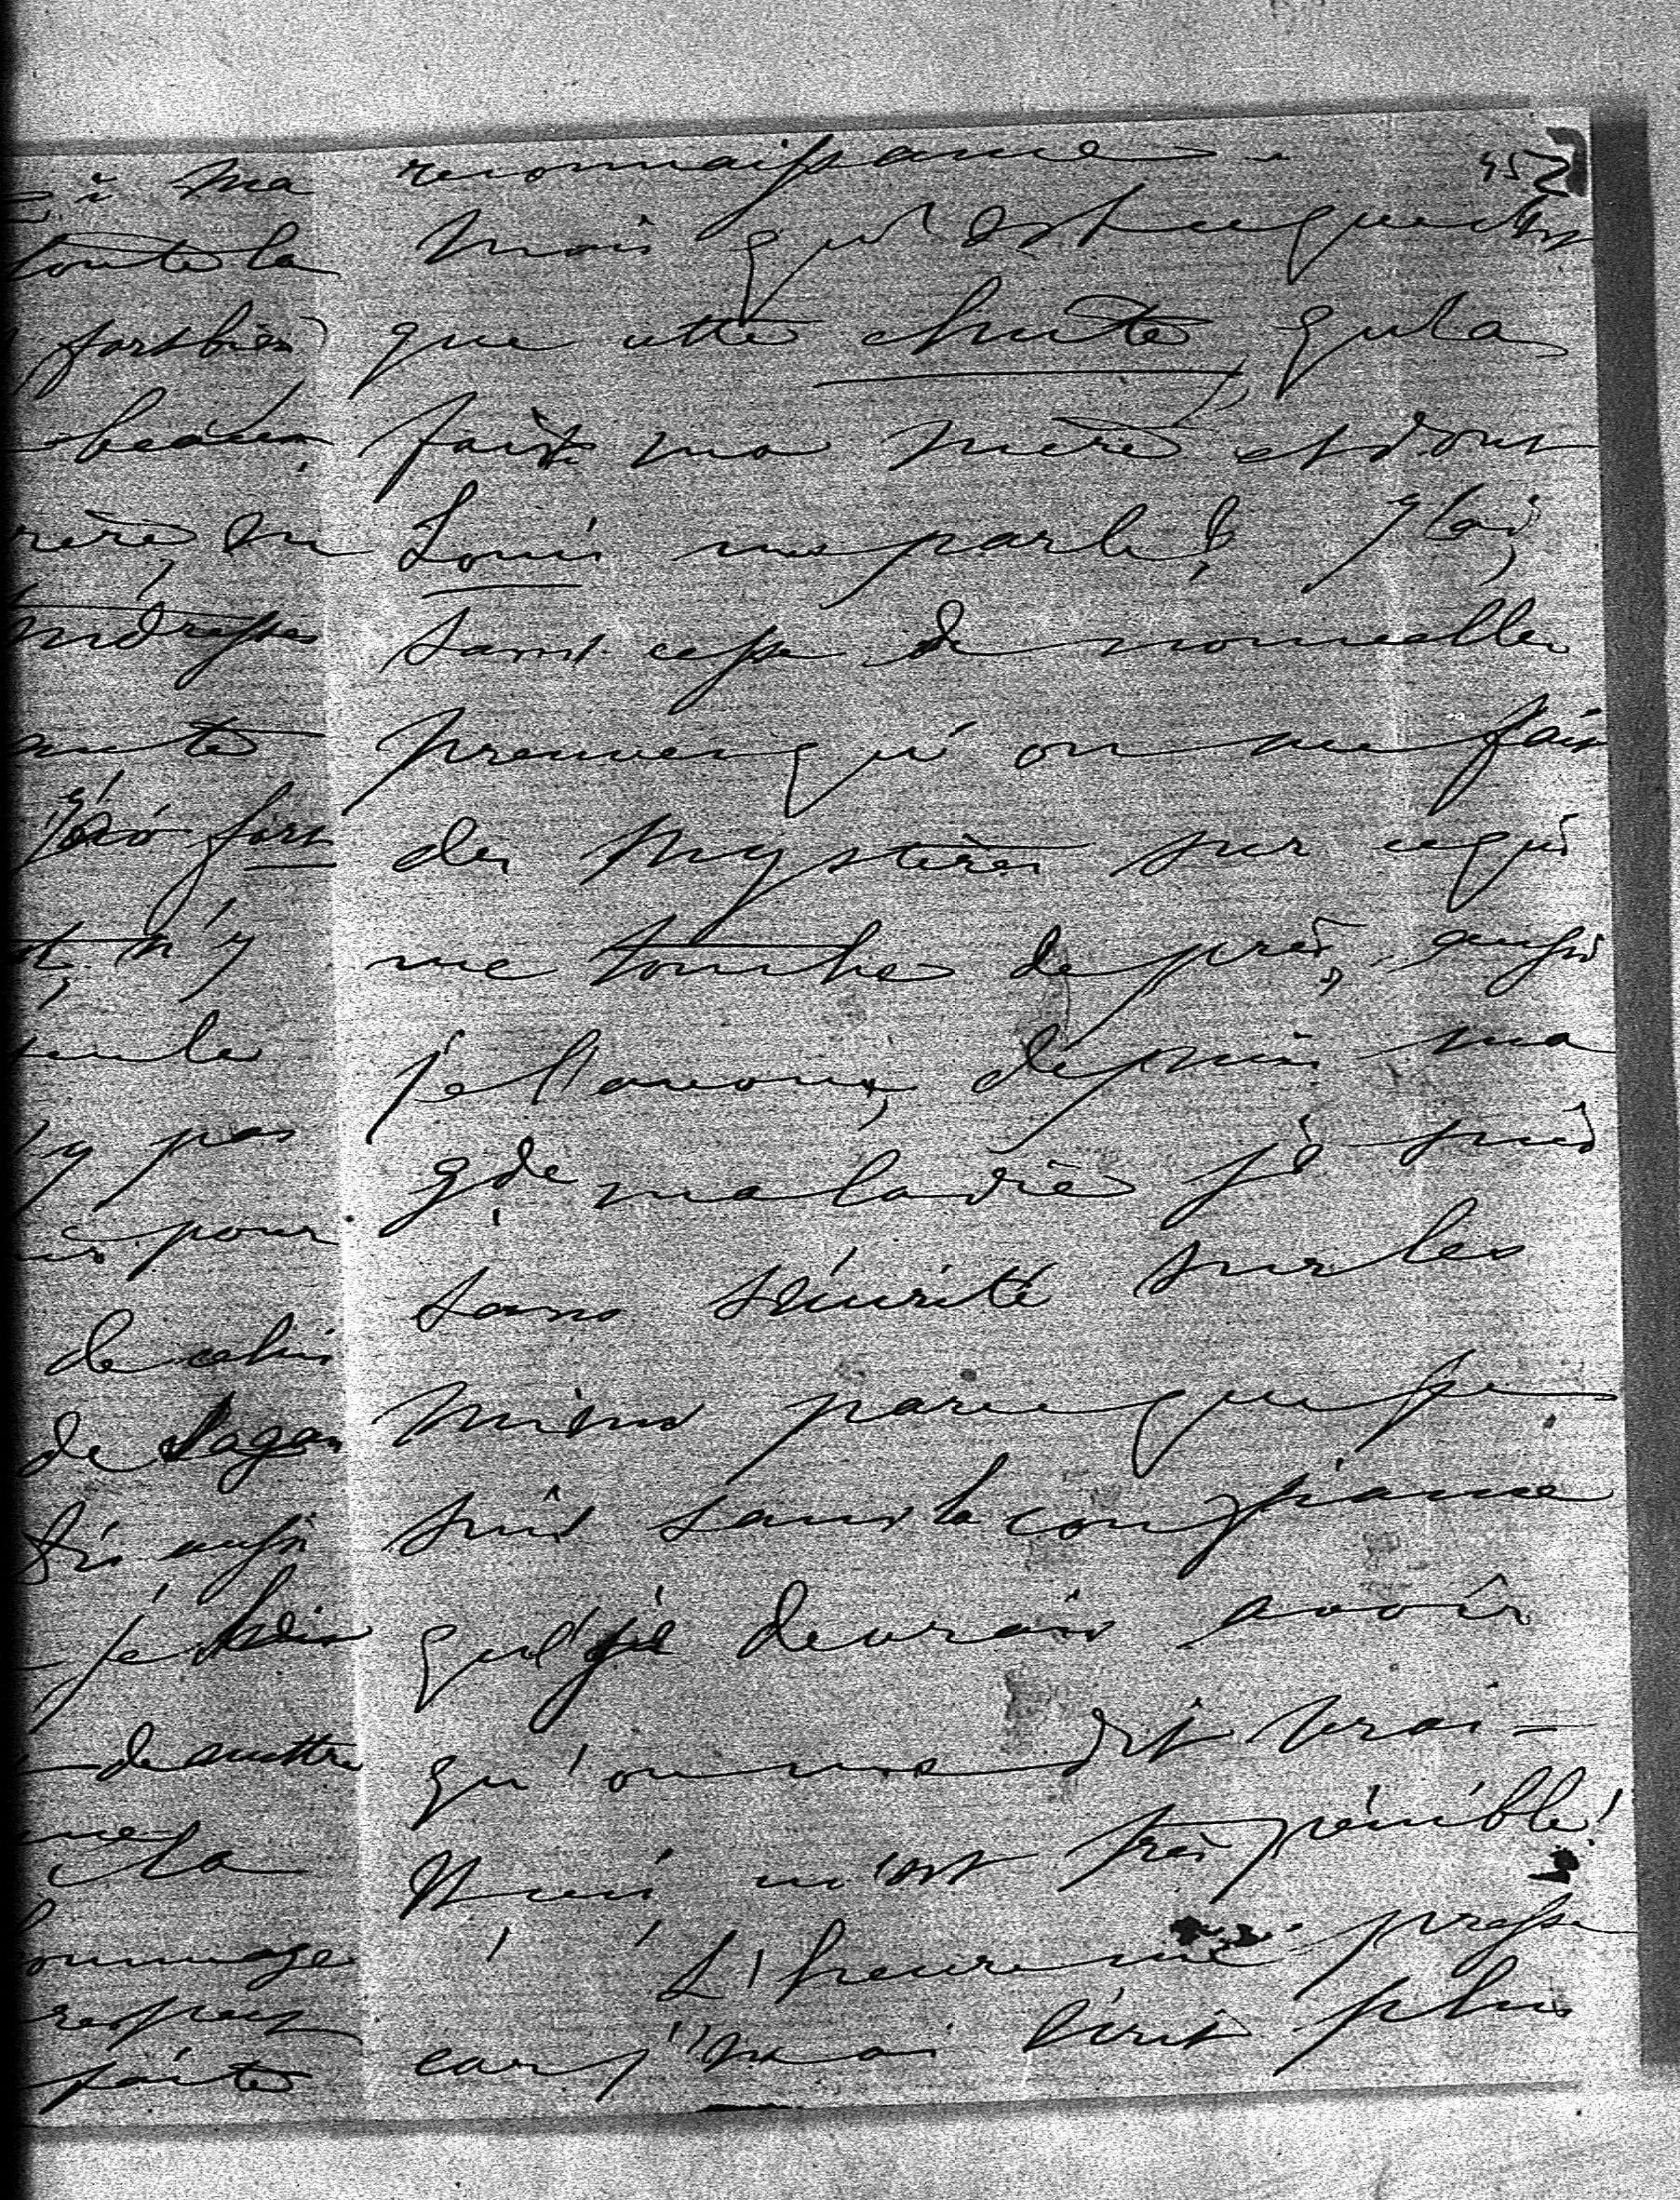 452
reconnaissance.
Mais qu'est ce que c'est
que cette chute, qu'a
faite ma mère et dont
Louis me parle? J'ai
sans cesse de nouvelles
preuves qu'on me fait
des mystères sur ce qui
me touche de près, aussi
je l'avoue, depuis ma
gde maladie je suis
sans sécurité sur les
miens parce que je
suis sans la confiance
que je devrais avoir
qu'on me dit vrai –
Ceci m'est très pénible!
L'heure me presse
car j'ai écrit plus
à ma
toute la
fort bien
beau
mère
tendresses
fort
n'y
seule
y pas
pour
de celui
de Sagan
aussi
je
de mettre
la
hommage
respect
faite